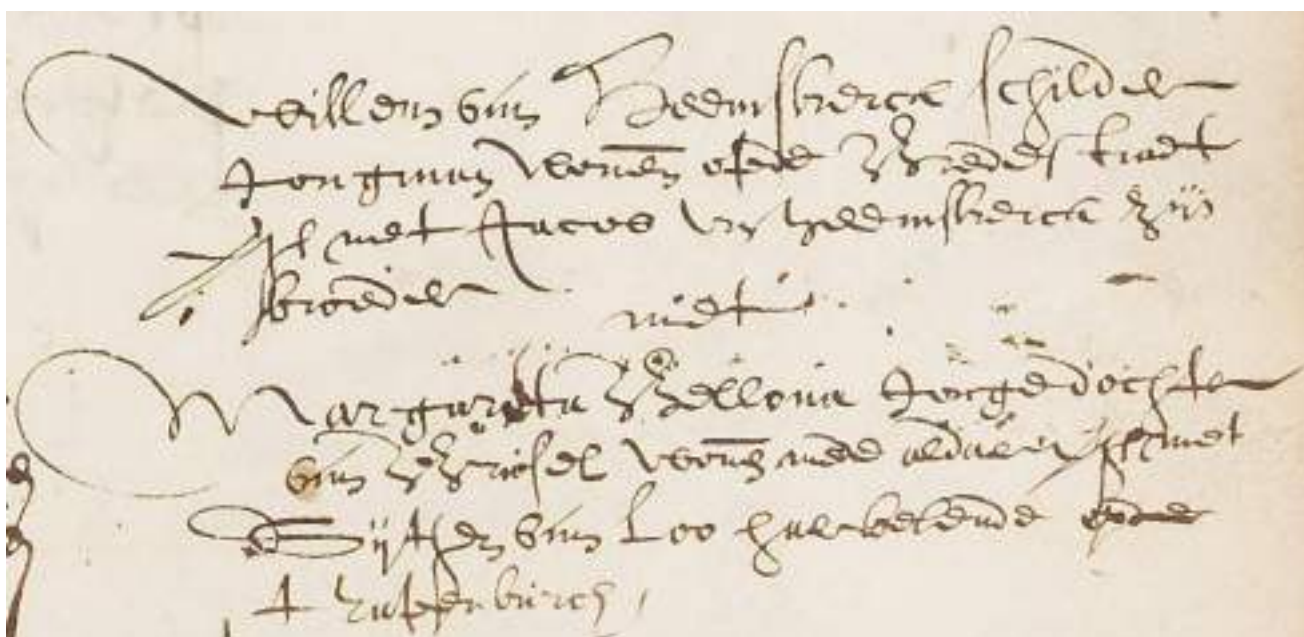 Willem van Heemskerck schilder
Jongman wonen opde Breedestraet
met Jacob van heemskerck zijn
broeder
met
Margarita Bellona Jongedochter
van Brissel wonen mede aldaer met
Fijtken van Loo haer bekende opde
Papenburch